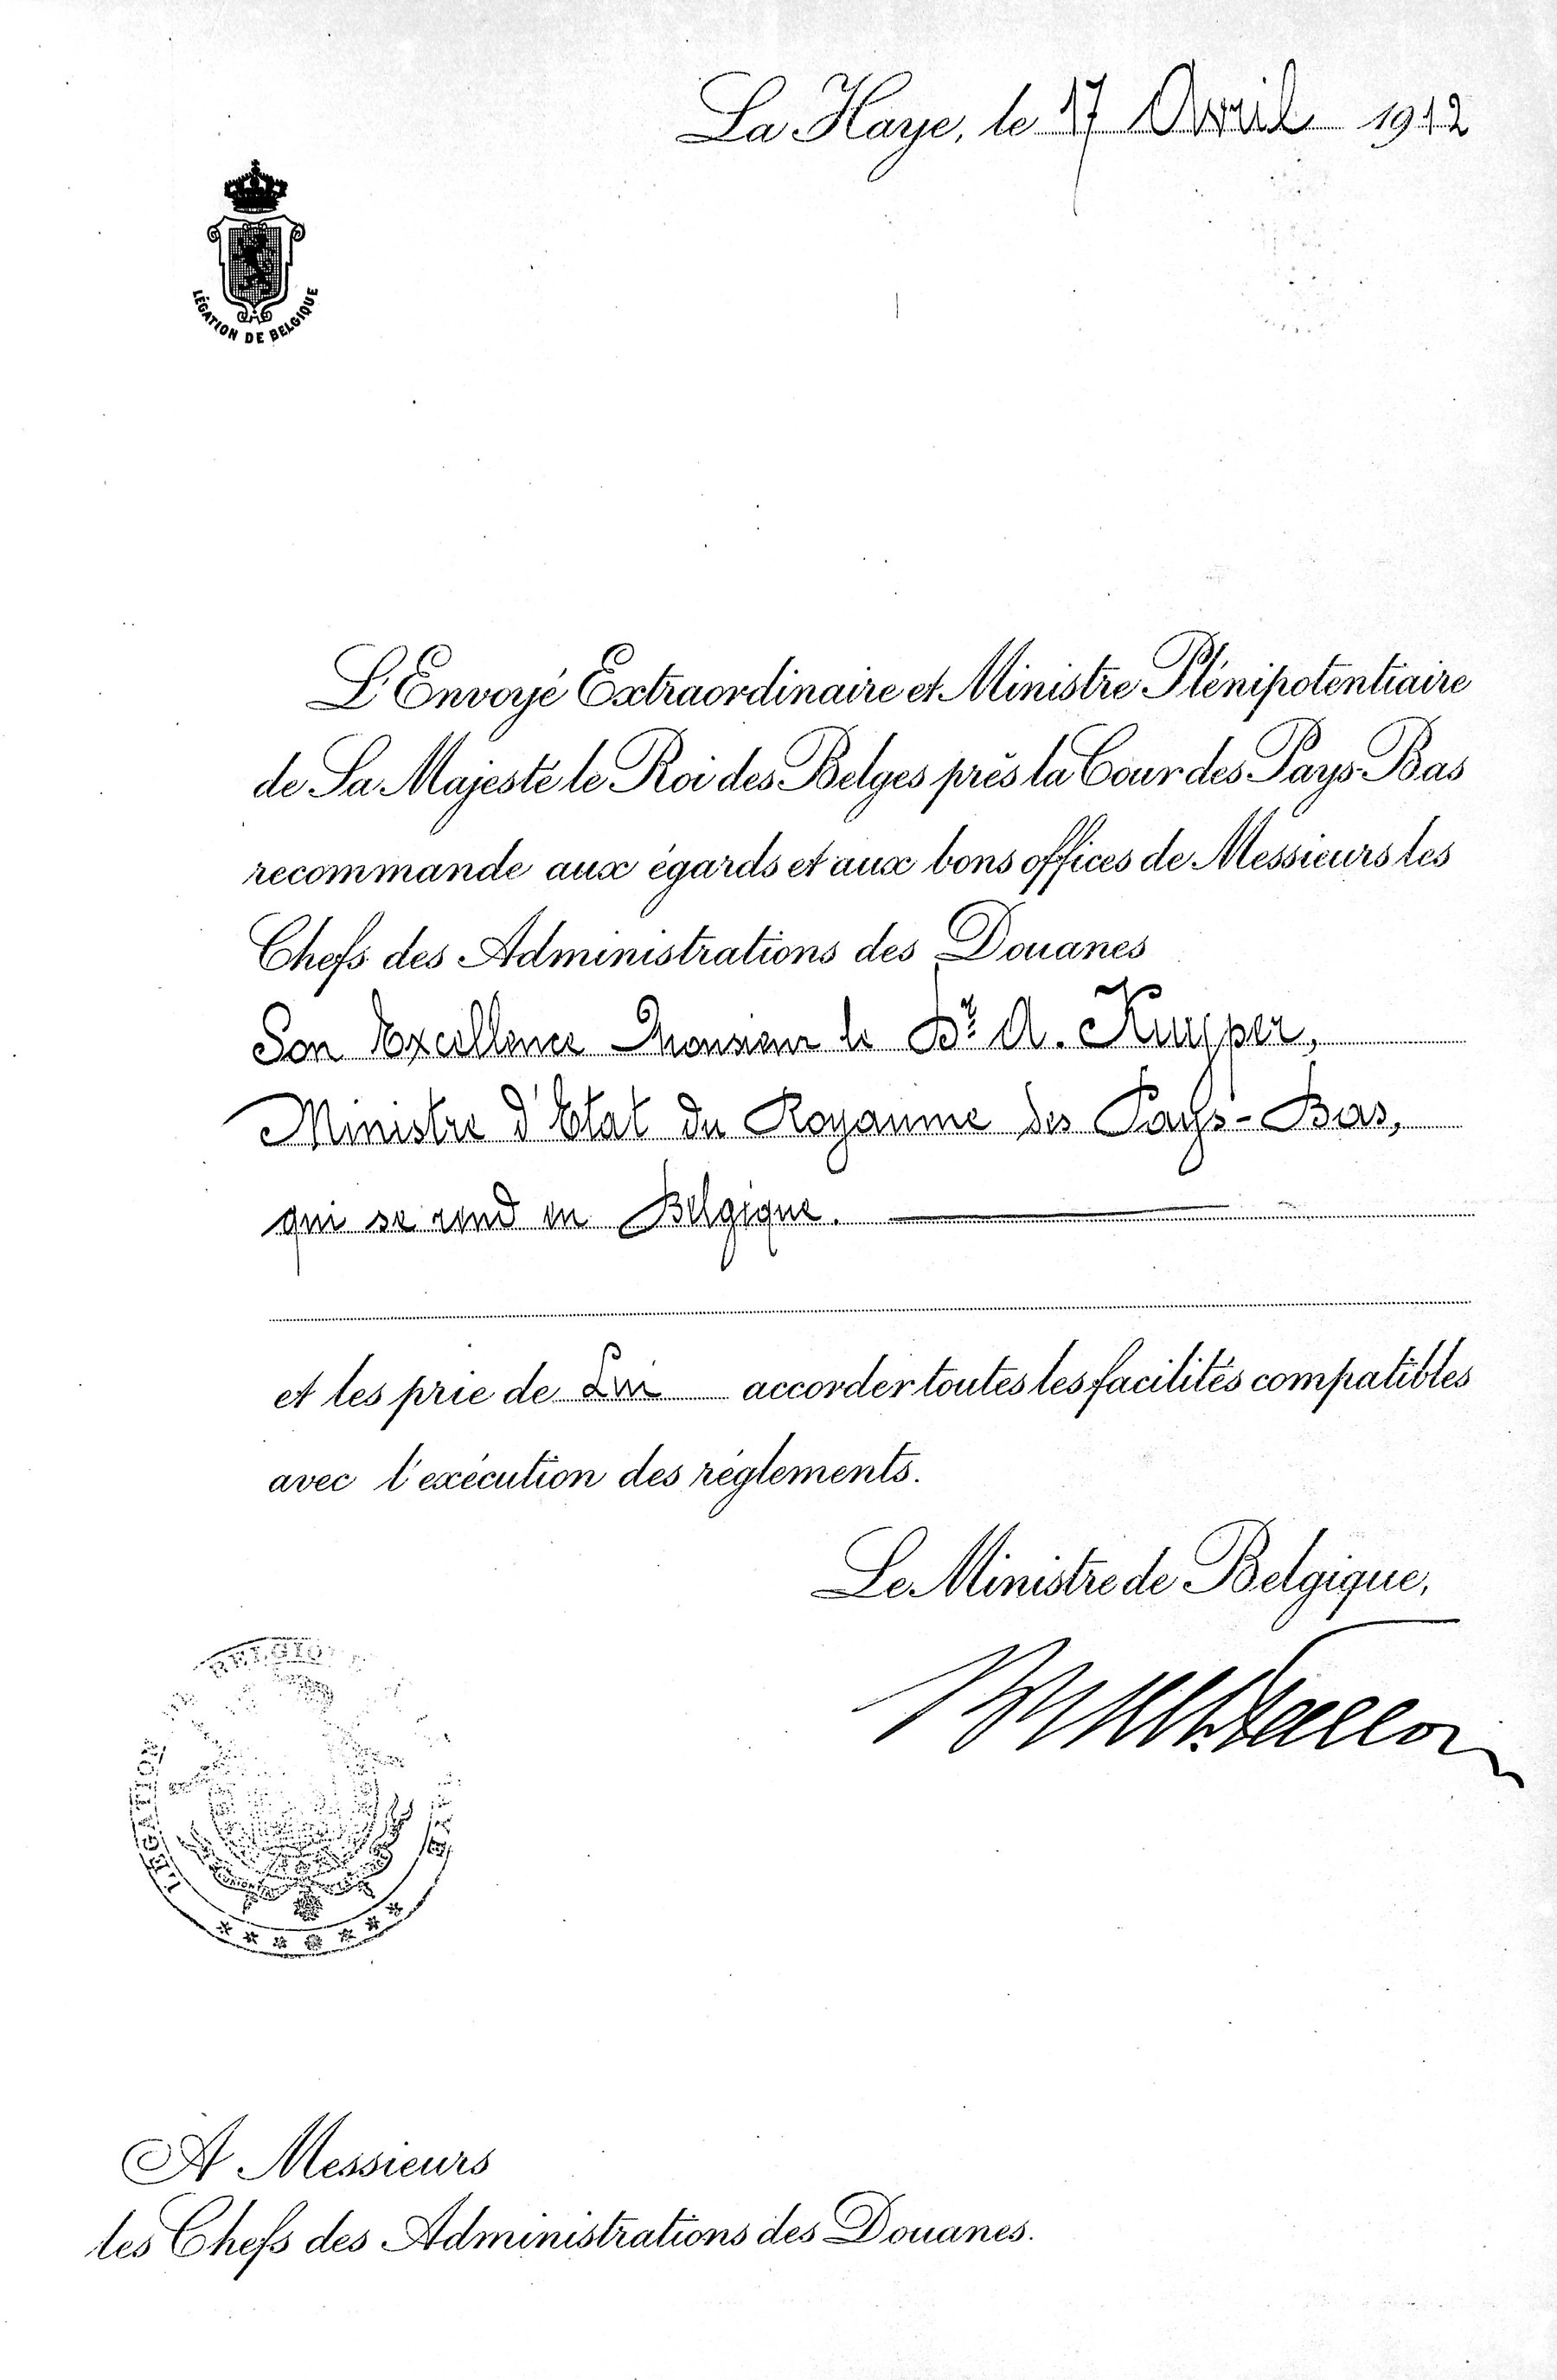 La Haye, le 17 Avril 1912
LÉGATION DE BELGIQUE
L'Envoyé Extraordinaire et Ministre Plénipotentiaire
de Sa Majesté le Roi des Belges près la Cour des Pays-Bas
recommande aux égards et aux bons offices de Messieurs les
Chefs des Administrations des Douanes
Son Excellence Monsieur le Dr. A. Kuyper,
Ministre d'Etat du Royaume des Pays-Bas,
qui se rend en Belgique.
et les prie de Lui accorder toutes les facilités compatibles
avec l'exécution des règlements.
Le Ministre de Belgique,
Fallon
LÉGATION DE BELGIQUE
A Messieurs
les Chefs des Administrations des Douanes.